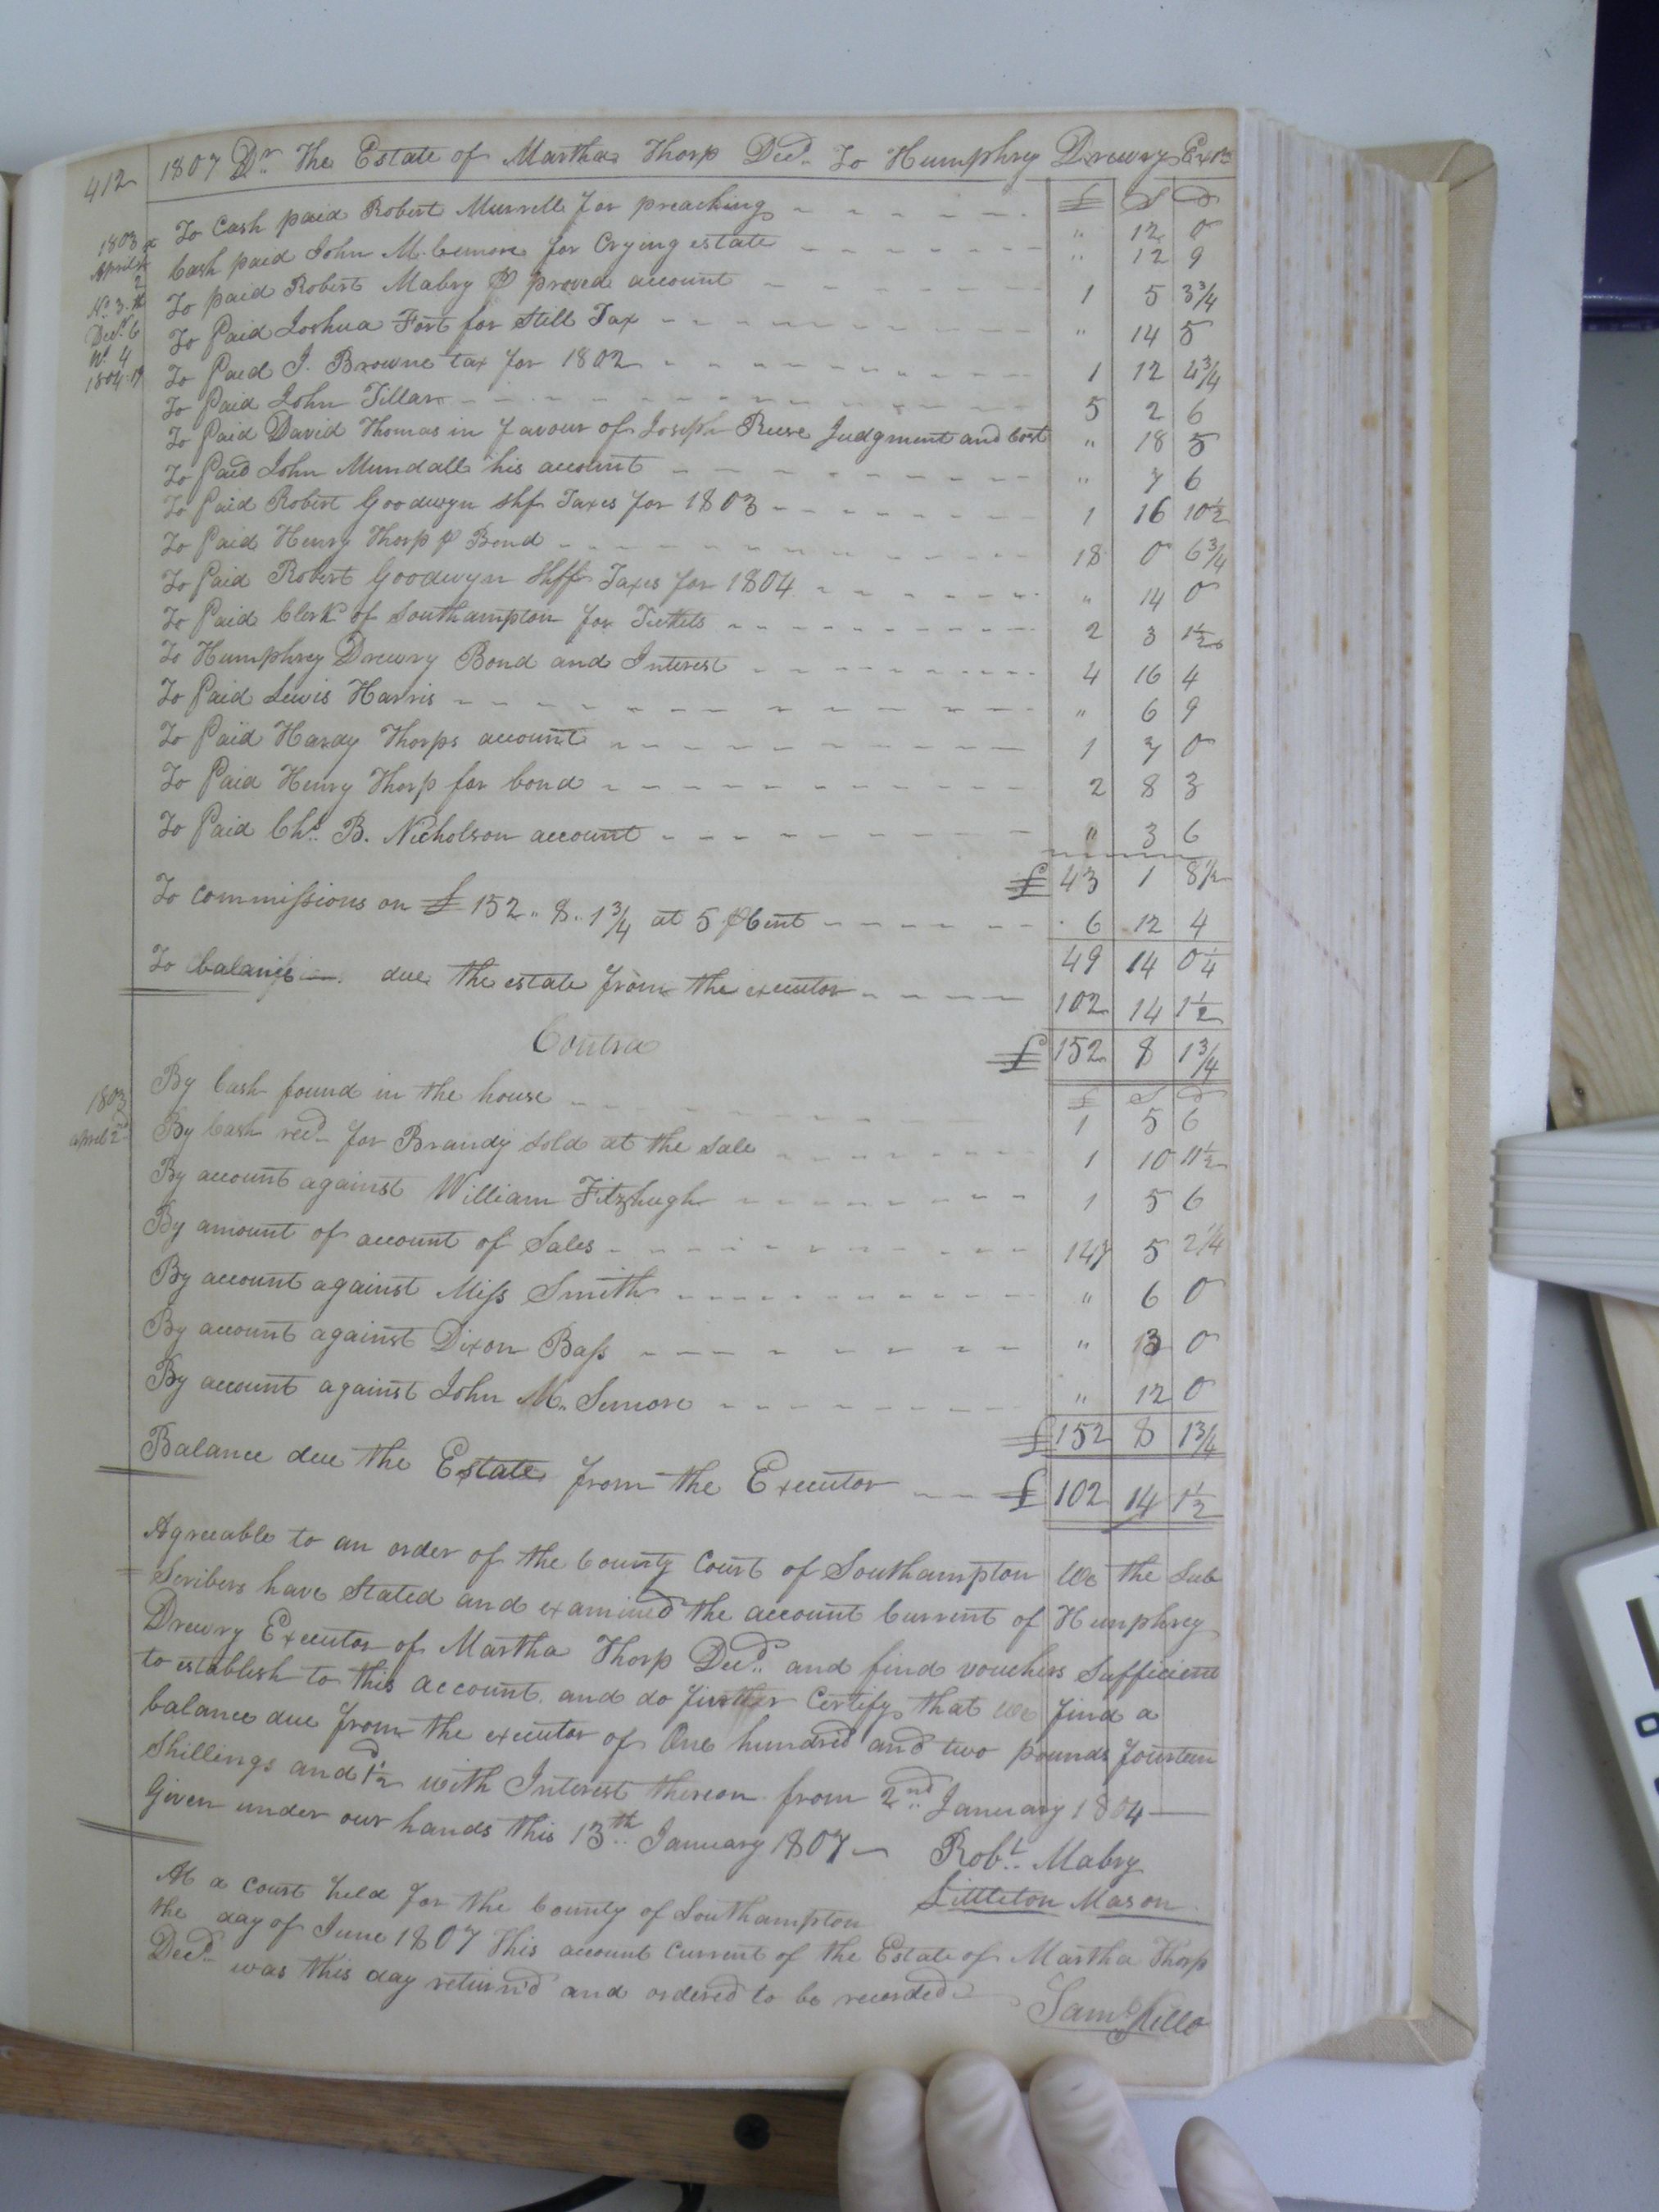 412 1807 Dr. The Estate of Martha Thorp Decd. To Humphrey Drewry Exr.
£ S D
1803 To Cash paid Robert Murrell for preaching " 12 0
April Cash paid John M. Cemore for Crying estate " 12 9
2 No. 3 To paid Robert Mabry P proved account 1 5 3 3/4
Decr. 6 To Paid Joshua Fort for Still Tax " 14 5
No. 4 To Paid J. Browne tax for 1802 1 12 4 3/4
1804 19 To Paid John Tillar 5 2 6
To Paid David Thomas in favour of Joseph Reese Judgment and Cost " 18 5
To Paid John Mundall his account " 7 6
To Paid Robert Goodwyn Shf Taxes for 1803 1 16 10 1/2
To Paid Henry Thorp p Bond 18 0 6 3/4
To Paid Robert Goodwyn Shff Taxes for 1804 " 14 0
To Paid Clerk of Southampton for Tickets 2 3 1 1/2
To Humphrey Drewry Bond and Interest 4 16 4
To Paid Lewis Harris " 6 9
To Paid Hardy Thorps account 1 7 0
To Paid Henry Thorp for bond 2 8 3
To Paid Chs. B. Nicholson account " 3 6
£ 43 1 8 1/4
To commissions on £ 152 " 8 " 1 3/4 at 5 P Cent 6 12 4
49 14 0 1/4
To balance due the estate from the executor 102 14 1 1/2
Contra £ 152 8 1 3/4
£ S D
1803 By Cash found in the house 1 5 6
April 2nd By Cash recd. for Brandy sold at the sale 1 10 11 1/2
By account against William Fitzhugh 1 5 6
By amount of account of Sales 147 5 2 1/4
By account against Miss Smith " 6 0
By account against Dixon Bass " 13 0
By account against John M. Semore " 12 0
£ 152 8 1 3/4
Balance due the Estate from the Executor £ 102 14 1 1/2
Agreeable to an order of the County Court of Southampton We the Sub
Scribers have Stated and examined the account Current of Humphrey
Drewry Executor of Martha Thorp Decd. and find vouchers Sufficient
to establish to this account and do further Certify that we find a
balance due from the executor of One hundred and two pounds fourteen
Shillings and 1 1/2 d with Interest thereon from 2nd. January 1804
Given under our hands this 13th. January 1807
Robt. Mabry
Littleton Mason
At a Court held for the County of Southampton
the day of June 1807 This account Current of the Estate of Martha Thorp
Decd. was this day return'd and ordered to be recorded
Saml. Kello